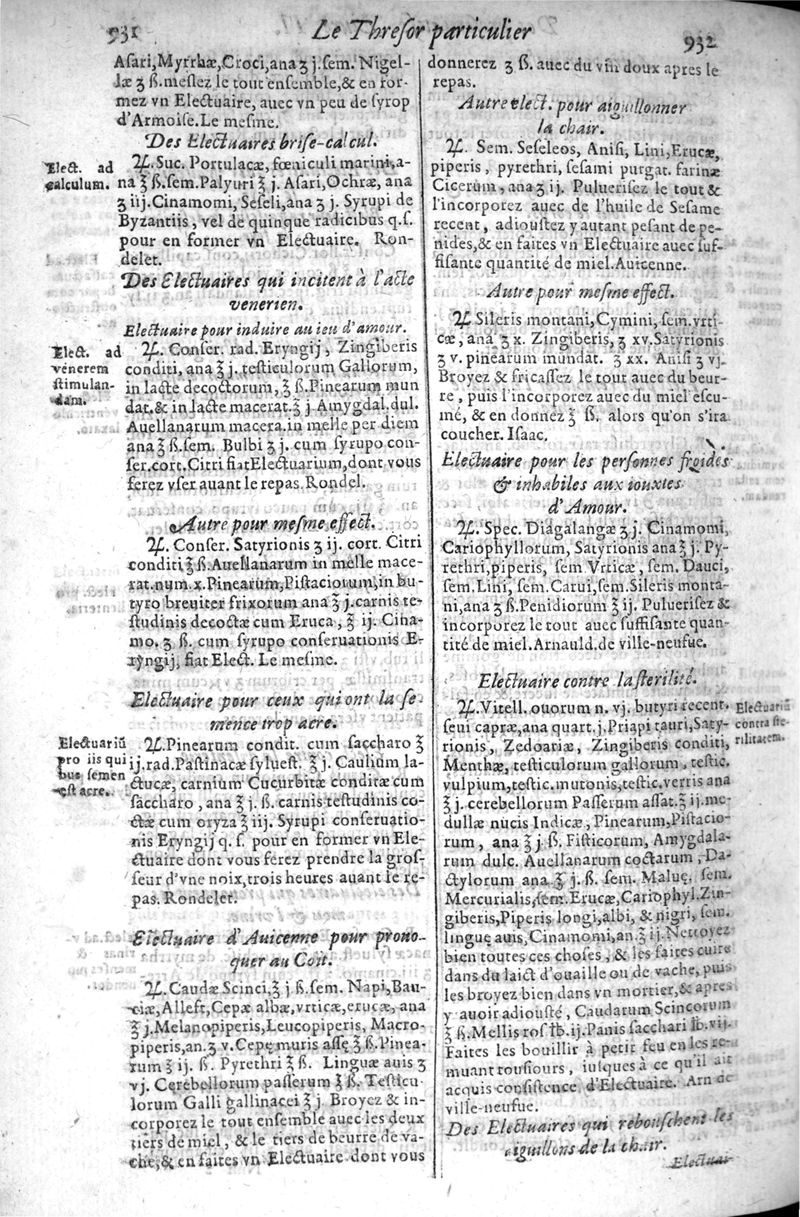 931
Le Thresor particulier
932
Asari, Myrrhæ, Croci, ana ʒ j. sem. Nigel-
læ ʒ ß. meslez le tout ensemble, & en for-
mez vn Electuaire, auec vn peu de syrop
d'Armoise. Le mesme.
Des Electuaires brise-calcul.
Elect. ad
calculum.
♃. Suc. Portulacæ, fœniculi marini, a-
na ℥ ß. sem. Palyuri ℥ j. Asari, Ochræ, ana
ʒ iij. Cinamomi, Seseli, ana ʒ j. Syrupi de
Byzantiis, vel de quinque radicibus q. s.
pour en former vn Electuaire. Ron-
delet.
Des Electuaires qui incitent à l'acte
venerien.
Electuaire pour induire au ieu d'amour.
Elect. ad
venerem
stimulan-
dam.
♃. Conser. rad. Eryngij, Zingiberis
conditi, ana ℥ j. testiculorum Gallorum,
in lacte decoctorum, ℥ ß. Pinearum mun
dat. & in lacte macerat. ℥ j Amygdal. dul.
Auellanarum macera. in melle per diem
ana ℥ ß. sem. Bulbi ℥ j. cum syrupo con-
ser. cort. Citri fiat Electuarium, dont vous
ferez vser auant le repas. Rondel.
Autre pour mesme effect.
♃. Conser. Satyrionis ʒ ij. cort. Citri
conditi ℥ ß. Auellanarum in melle mace-
rat. num. x. Pinearum, Pistaciorum, in bu-
tyro breuiter frixorum ana ℥ j. carnis te-
studinis decoctæ cum Eruca, ℥ ij. Cina-
mo. ʒ ß. cum syrupo conseruationis E-
ryngij, fiat Elect. Le mesme.
Electuaire pour ceux qui ont la se-
mence trop acre.
Electuariũ
pro iis qui
bus semen
est acre.
♃. Pinearum condit. cum saccharo ℥
ij. rad. Pastinacæ syluest. ℥ j. Caulium la-
ctucæ, carnium Cucurbitæ conditæ cum
saccharo, ana ℥ j. ß. carnis testudinis co-
ctæ cum oryza ℥ iij. Syrupi conseruatio-
nis Eryngij q. s. pour en former vn Ele-
ctuaire dont vous ferez prendre la gros-
seur d'vne noix, trois heures auant le re-
pas. Rondelet.
Electuaire d'Auicenne pour prouo-
quer au Coit.
♃. Caudæ Scinci, ℥ j. ß. sem. Napi, Bau-
ciæ, Alleft, Cepæ albæ, vrticæ, erucæ, ana
℥ j. Melanopiperis, Leucopiperis, Macro-
piperis, an. ʒ v. Cepę muris assę ℥ ß. Pinea-
rum ℥ ij. ß. Pyrethri ℥ ß. Linguæ auis ʒ
vj. Cerebellorum passerum ℥ ß. Testicu-
lorum Galli gallinacei ℥ j. Broyez & in-
corporez le tout ensemble auec les deux
tiers de miel, & le tiers de beurre de va-
che, & en faites vn Electuaire dont vous
donnerez ʒ ß. auec du vin doux apres le
repas.
Autre elect. pour aiguillonner
la chair.
♃. Sem. Seseleos, Anisi, Lini, Erucæ,
piperis, pyrethri, sesami purgat. farinæ
Cicerum, ana ʒ ij. Puluerisez le tout &
l'incorporez auec de l'huile de Sesame
recent, adioustez y autant pesant de pe-
nides, & en faites vn Electuaire auec suf-
fisante quantité de miel. Auicenne.
Autre pour mesme effect.
♃ Sileris montani, Cymini, sem. vrti-
cæ, ana ʒ x. Zingiberis, ʒ xv. Satyrionis
ʒ v. pinearum mundat. ʒ xx. Anisi ʒ vj.
Broyez & fricassez le tout auec du beur-
re, puis l'incorporez auec du miel escu-
mé, & en donnez ℥ ß. alors qu'on s'ira
coucher. Isaac.
Electuaire pour les personnes froides
& inhabiles aux iouxtes
d'Amour.
♃. Spec. Diagalangæ ʒ j. Cinamomi,
Cariophyllorum, Satyrionis ana ℥ j. Py-
rethri, piperis, sem Vrticæ, sem. Dauci,
sem. Lini, sem. Carui, sem. Sileris monta-
ni, ana ʒ ß. Penidiorum ℥ ij. Puluerisez &
incorporez le tout auec suffisante quan-
tité de miel. Arnauld. de ville-neufue.
Electuaire contre la sterilité.
Electuariũ
contra ste-
rilitatem.
♃. Vitell. ouorum n. vj. butyri recent.
seui capræ, ana quart. j. Priapi tauri, Saty-
rionis, Zedoariæ, Zingiberis conditi,
Menthæ, testiculorum gallorum, testic.
vulpium, testic. mutonis, testic. verris ana
℥ j. cerebellorum Passerum assat. ℥ ij. me-
dullæ nucis Indicæ, Pinearum, Pistacio-
rum, ana ℥ j. ß. Fisticorum, Amygdala-
rum dulc. Auellanarum coctarum, Da-
ctylorum ana ℥ j. ß. sem. Maluę, sem.
Mercurialis, sem. Erucæ, Cariophyl. Zin-
giberis, Piperis longi, albi, & nigri, sem.
linguę auis, Cinamomi, an. ℥ ij. Nettoyez
bien toutes ces choses, & les faites cuire
dans du laict d'ouaille ou de vache, puis
les broyez bien dans vn mortier, & apres
y auoir adiousté, Caudarum Scincorum
℥ ß. Mellis ros ℔. ij. Panis sacchari ℔. vij.
Faites les bouillir à petit feu en les re-
muant tousiours, iusques à ce qu'il ait
acquis consistence d'Electuaire. Arn de
ville-neufue.
Des Electuaires qui rebouschent les
aiguillons de la chair.
Electuai-